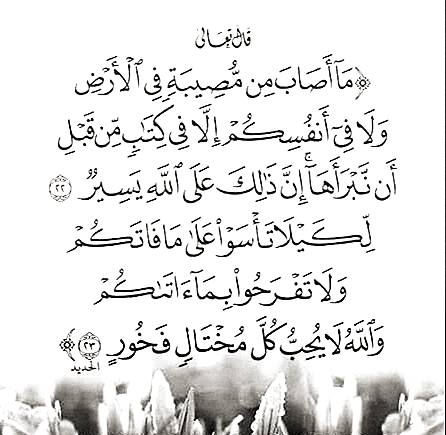 قال تعالى
﴿مَآ أَصَابَ مِن مُّصِيبَةٍ فِي ٱلۡأَرۡضِ
وَلَا فِيٓ أَنفُسِكُمۡ إِلَّا فِي كِتَٰبٖ مِّن قَبۡلِ
أَن نَّبۡرَأَهَآۚ إِنَّ ذَٰلِكَ عَلَى ٱللَّهِ يَسِيرٞ ٢٢
لِّكَيۡلَا تَأۡسَوۡاْ عَلَىٰ مَا فَاتَكُمۡ
وَلَا تَفۡرَحُواْ بِمَآ ءَاتَىٰكُمۡ
وَٱللَّهُ لَا يُحِبُّ كُلَّ مُخۡتَالٖ فَخُورٍ ٢٣﴾
الحديد